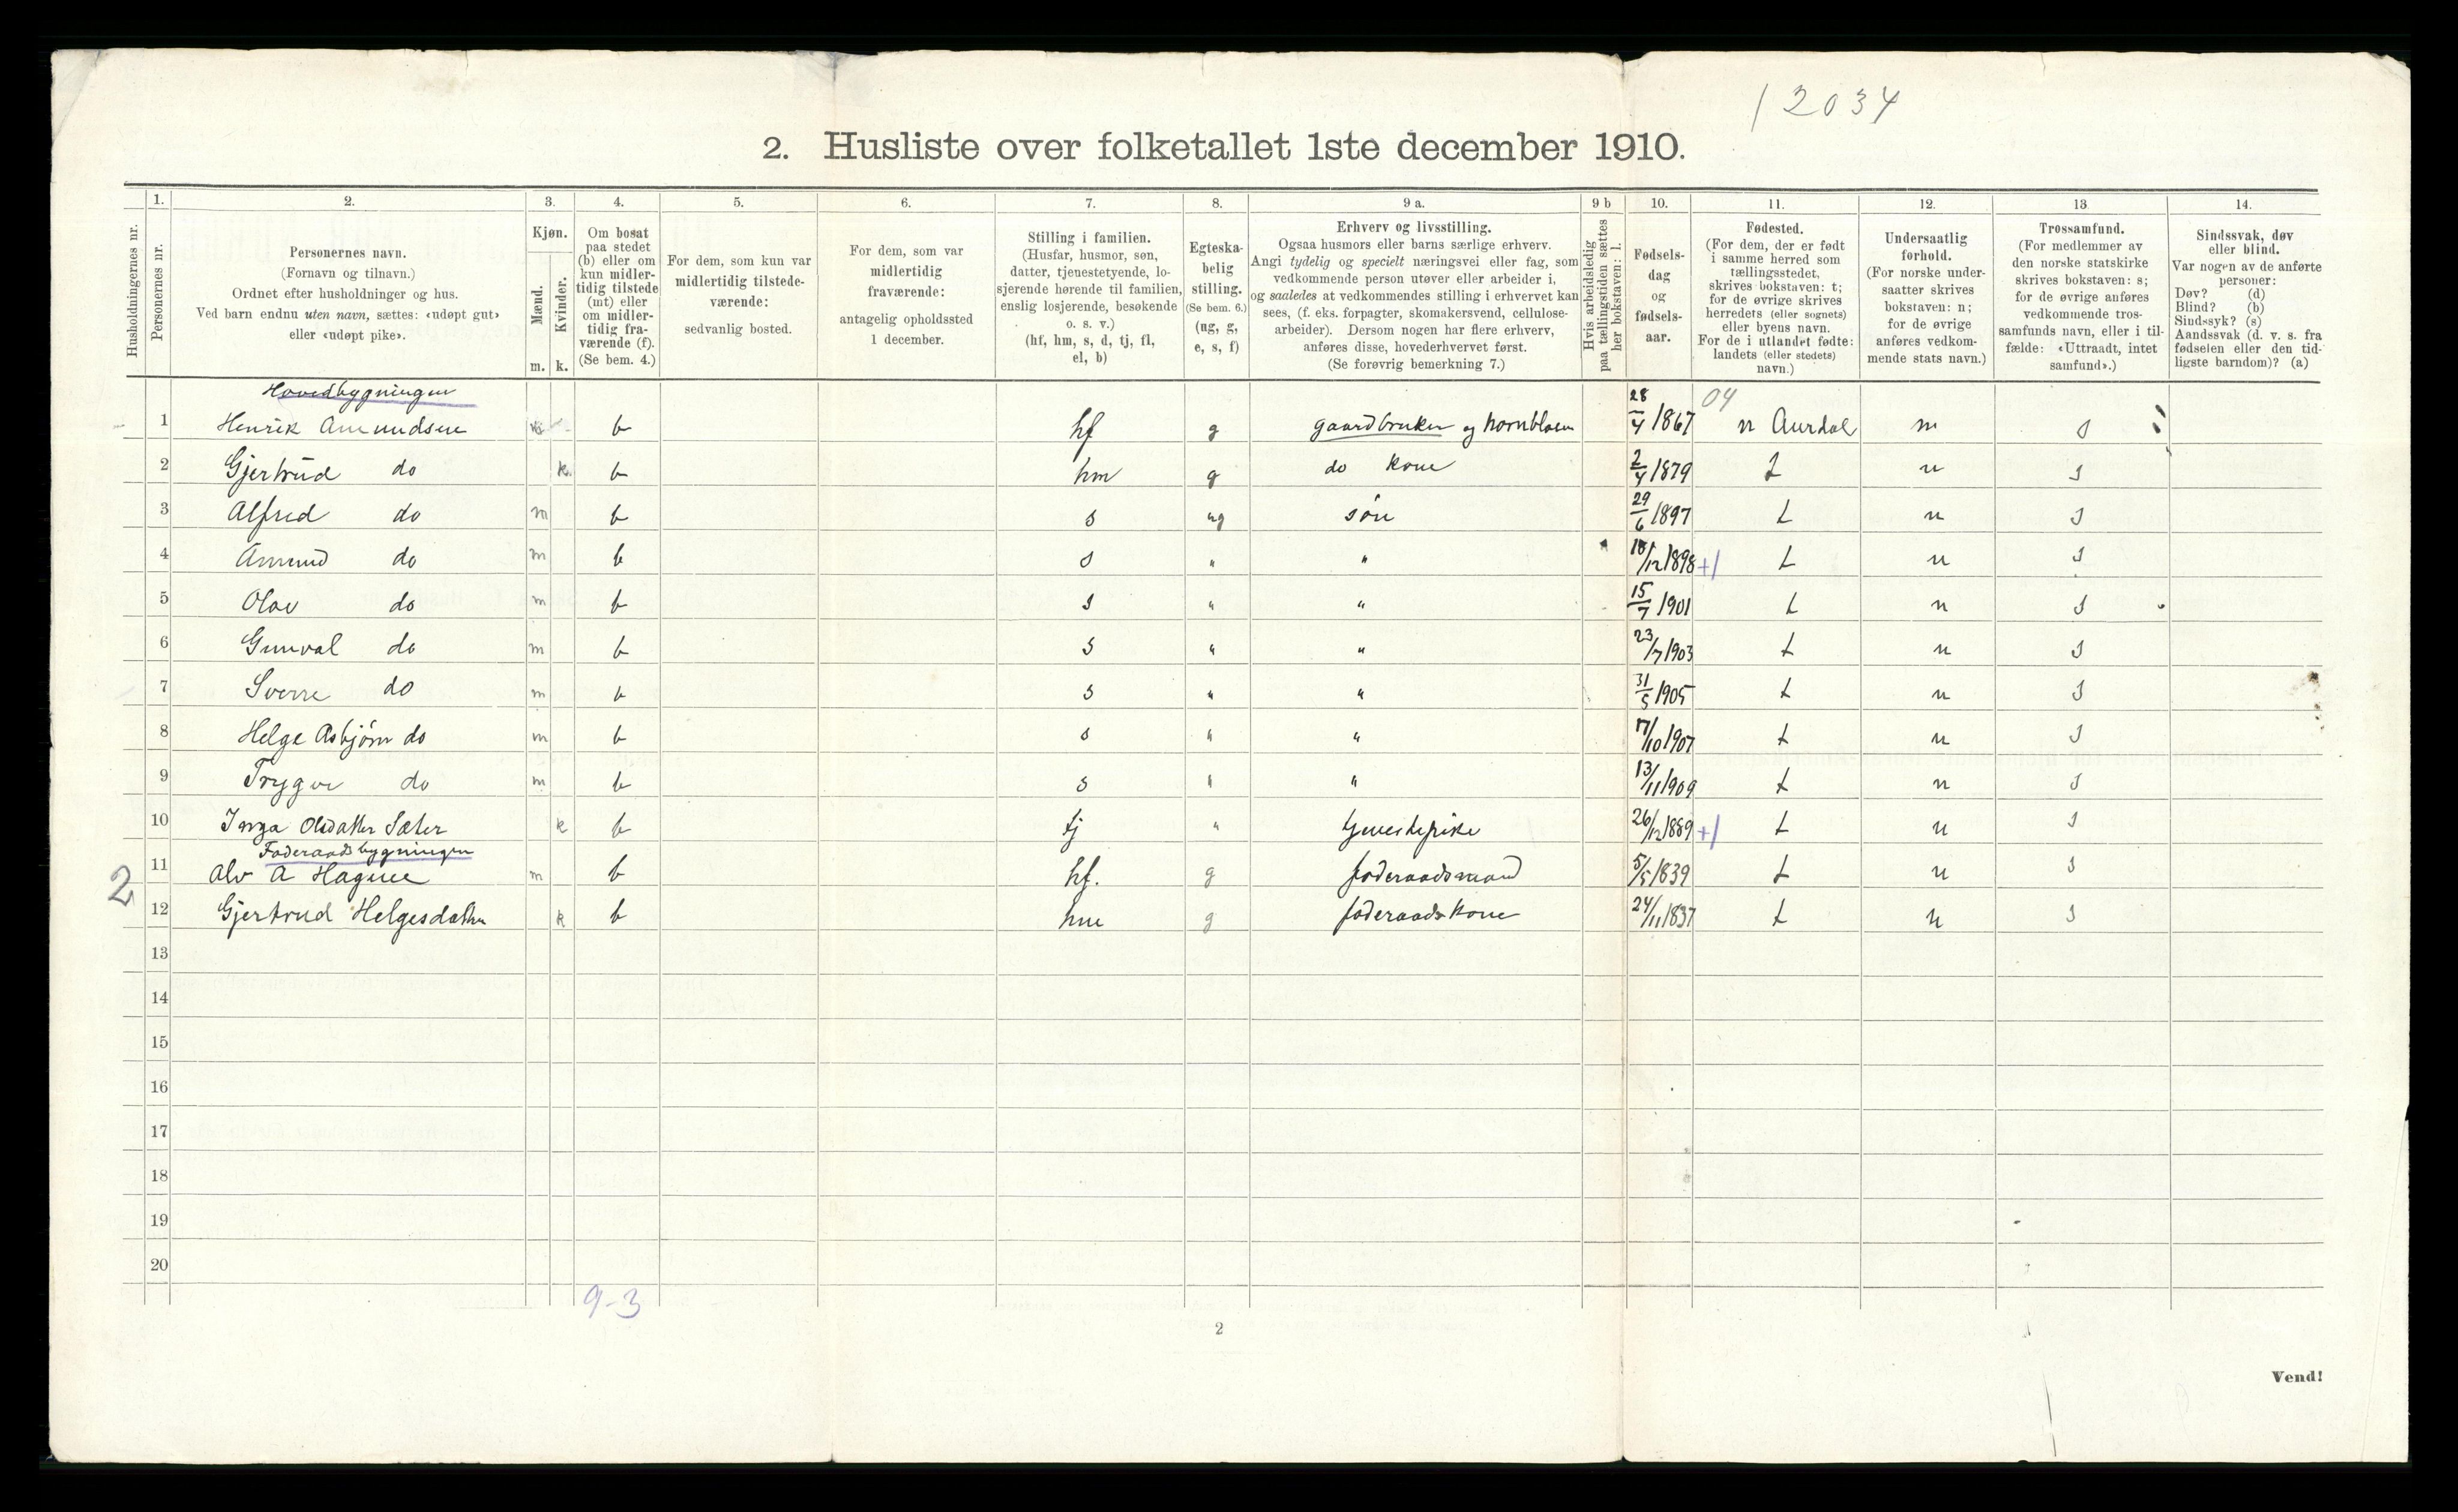 12034
2. Husliste over folketallet 1ste december 1910.
Husholdningernes nr.
1.
Personernes nr.
2.
Personernes navn.
(Fornavn og tilnavn.)
Ordnet efter husholdninger og hus.
Ved barn endnu uten navn, sættes: «udøpt gut»
eller «udøpt pike».
3.
Kjøn.
Mænd.
Kvinder.
m. k.
4.
Om bosat
paa stedet
(b) eller om
kun midler-
tidig tilstede
(mt) eller
om midler-
tidig fra-
værende (f).
(Se bem. 4.)
5.
For dem, som kun var
midlertidig tilstede-
værende:
sedvanlig bosted.
6.
For dem, som var
midlertidig
fraværende:
antagelig opholdssted
1 december.
7.
Stilling i familien.
(Husfar, husmor, søn,
datter, tjenestetyende, lo-
sjerende hørende til familien,
enslig losjerende, besøkende
o. s. v.)
(hf, hm, s, d, tj, fl,
el, b)
8.
Egteska-
belig
stilling.
(Se bem. 6.)
(ug, g,
e, s, f)
9 a.
Erhverv og livsstilling.
Ogsaa husmors eller barns særlige erhverv.
Angi tydelig og specielt næringsvei eller fag, som
vedkommende person utøver eller arbeider i,
og saaledes at vedkommendes stilling i erhvervet kan
sees, (f. eks. forpagter, skomakersvend, cellulose-
arbeider). Dersom nogen har flere erhverv,
anføres disse, hovederhvervet først.
(Se forøvrig bemerkning 7.)
9 b
Hvis arbeidsledig
paa tællingstiden sættes
her bokstaven: l.
10.
Fødsels-
dag
og
fødsels-
aar.
11.
Fødested.
(For dem, der er født
i samme herred som
tællingsstedet,
skrives bokstaven: t;
for de øvrige skrives
herredets (eller sognets)
eller byens navn.
For de i utlandet fødte:
landets (eller stedets)
navn.)
12.
Undersaatlig
forhold.
(For norske under-
saatter skrives
bokstaven: n;
for de øvrige
anføres vedkom-
mende stats navn.)
13
Trossamfund.
(For medlemmer av
den norske statskirke
skrives bokstaven: s;
for de øvrige anføres
vedkommende tros-
samfunds navn, eller i til-
fælde: «Uttraadt, intet
samfund».)
14.
Sindssvak, døv
eller blind.
Var nogen av de anførte
personer:
Døv? (d)
Blind? (b)
Sindssyk? (s)
Aandssvak (d. v. s. fra
fødselen eller den tid-
ligste barndom)? (a)
Hovedbygningen
04
1 Henrik Amundsen m b hf g gaardbruker og 28/4 1867 n Aurdal n s
2 Gjertrud do k b hm g do kone 2/4 1879 t n s
3 Alfred do m b s ug søn 29/6 1897 t n s
4 Amund do m b s " " 18/12 1898 +1 t n s
5 Olav do m b s " " 15/7 1901 t n s
6 Gunval do m b s " " 23/7 1903 t n s
7 Sverre do m b s " " 31/5 1905 t n s
8 Helge Asbjørn do m b s " " 17/10 1907 t n s
9 Trygve do m b s " " 13/11 1909 t n s
10 Inga Olsdatter Sæter k b tj " tjenestepike 26/12 1889 +1 t n s
Føderaadsbygningen
2 11 Alv A Hagene m b hf. g føderaadsmand 5/5 1839 t n s
12 Gjertrud Helgesdatter k b hm g føderaadskone 24/11 1837 t n s
13
14
15
16
17
18
19
20
9-3
2
Vend!